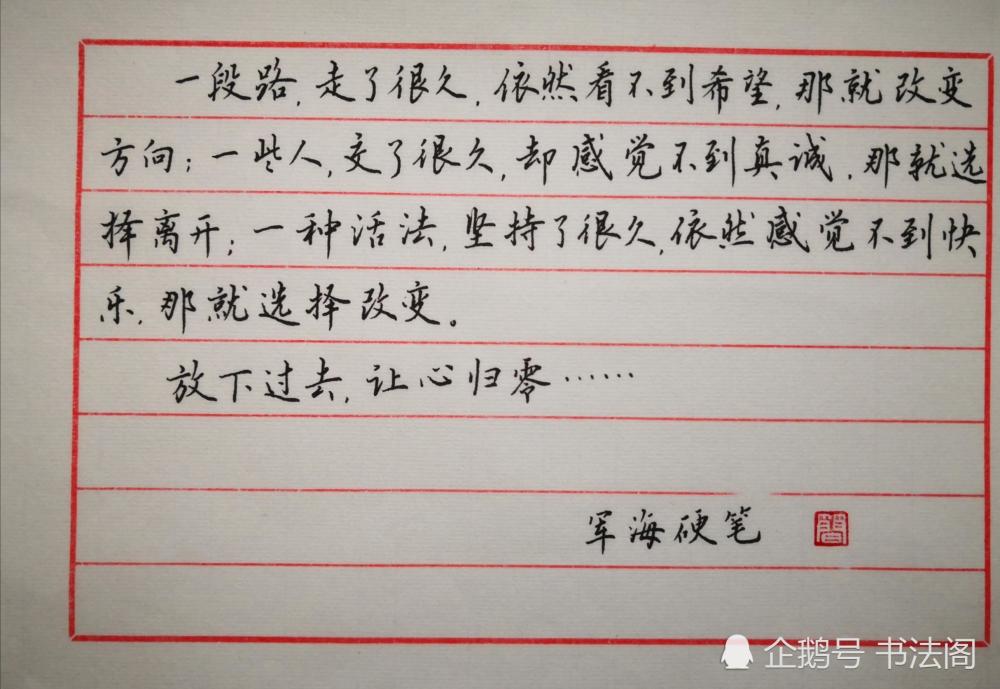 一段路，走了很久，依然看不到希望，那就改变
方向；一些人，交了很久，却感觉不到真诚，那就选
择离开；一种活法，坚持了很久，依然感觉不到快
乐，那就选择改变。
放下过去，让心归零……
军海硬笔
企鹅号 书法阁